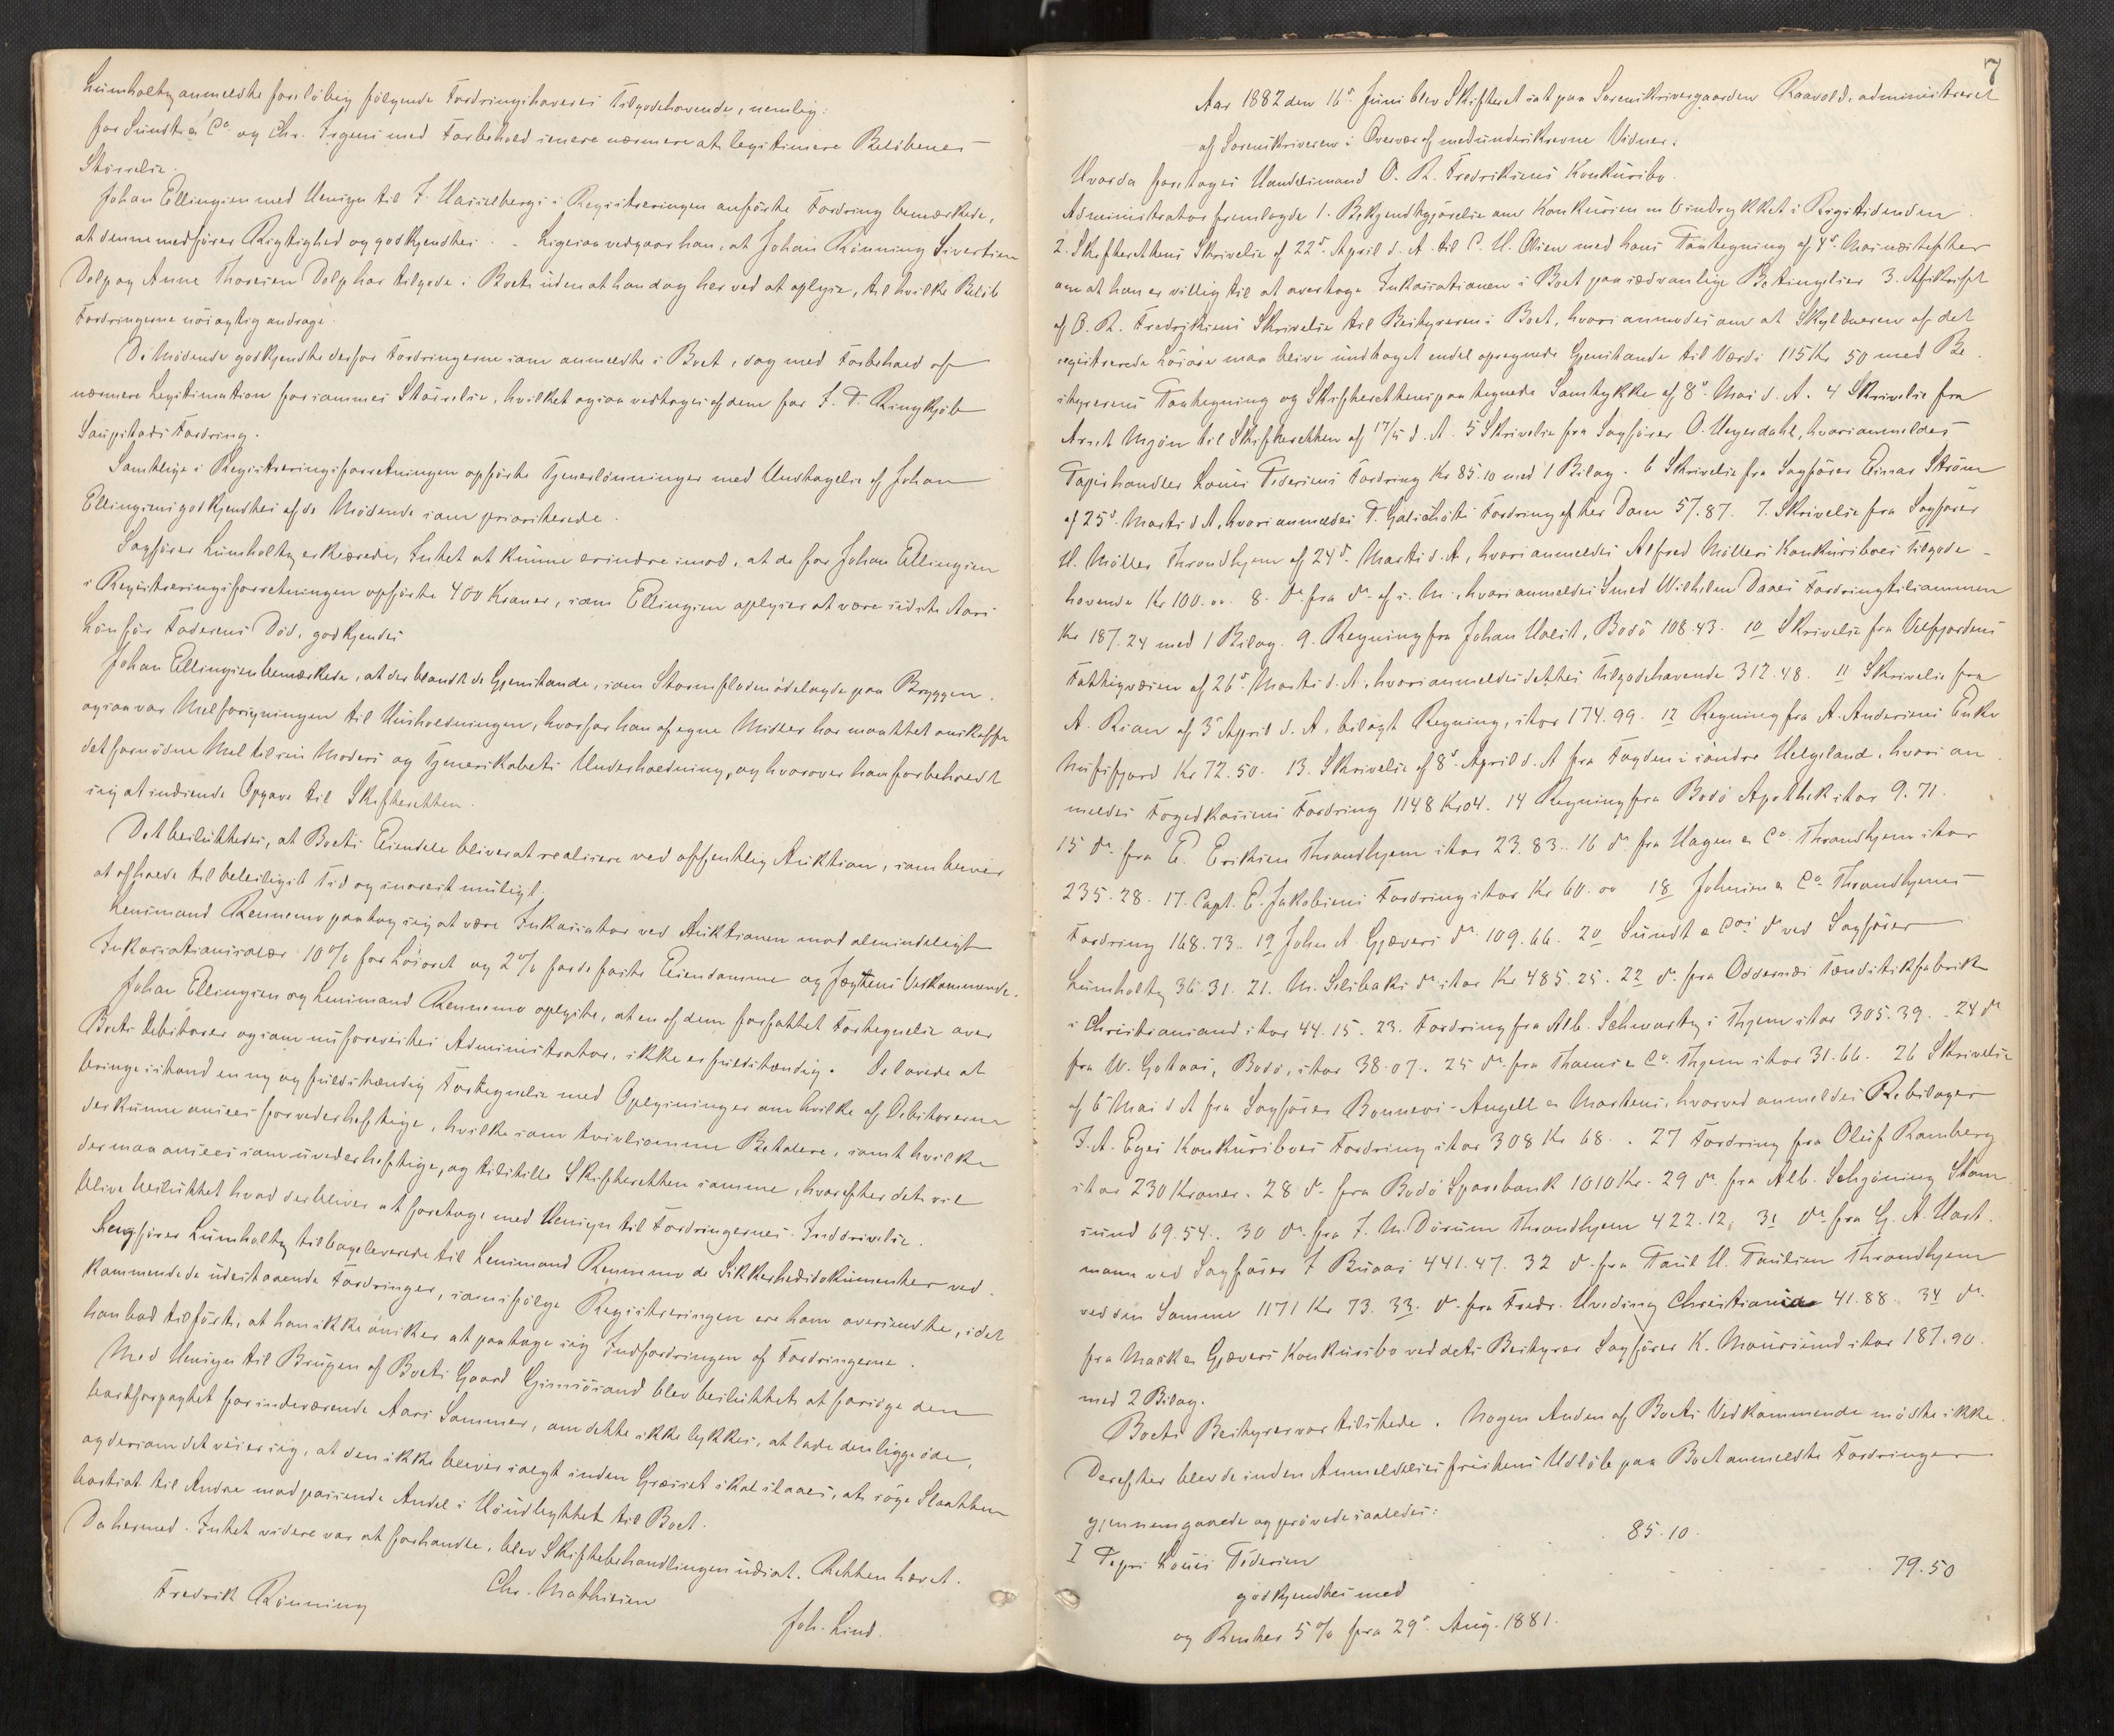 Lumholtz anmeldte foreløbig følgende Fordringshaveres Tilgodehavende, nemlig:
for Sundt & Co. og Chr. Irgens med Forbehold senere nærmere at legitimere Beløbenes
Størrelse.
Johan Ellingsen med Hensyn til J. Hasselbergs i Registreringen anførte Fordring bemærkede,
at denne medfører Rigtighed og godkjendtes. - Ligesaa vedgaar han, at Johan Rønning Sivertsen
Dolp og Anne Thoresen Dolp har tilgode i Boet uden at han dog her ved at oplyse, til hvilke Beløb
Fordringerne nøiagtig andrage.
De Mødende godkjendte derfor Fordringerne som anmeldte i Boet, dog med Forbehold af
nærmere Legitimation for sammes Størrelse, hvilket ogsaa vedtoges af dem for J. T. Ringkjøb
Saupstads Fordring.
Samtlige i Registreringsforretningen opførte Tjenerlønninger med Undtagelse af Johan
Ellingsens godkjendtes af de Mødende som prioriterede.
Sagfører Lumholtz erklærede, Intet at kunne erindre imod, at de for Johan Ellingsen
i Registreringsforretningen opførte 400 Kroner, som Ellingsen oplyser at være sidste Aars
Løn før Faderens Død, godkjendes
Johan Ellingsen bemærkede, at der blandt de Gjenstande, som Stormfloden ødelagde paa Bryggen.
ogsaa var Melforsyningen til Husholdningen, hvorfor han af egne Midler har maattet anskaffe
det fornødne Mel til sin Moders og Tjenerskabets Underholdning, og hvorover han forbeholdt
sig at indsende Opgave til Skifteretten.
Det besluttedes, at Boets Eiendele bliver at realisere ved offentlig Auktion, som bliver
at afholde til beleiligst Tid og snarest muligt.
Lensmand Rennemo paatog sig at være Inkassator ved Auktionen mod almindeligt
Inkassationssalær 10 % for Løsøret og 2 % for de faste Eiendomme og Jægtens Vedkommende.
Johan Ellingsen og Lensmand Rennemo oplyste, at en af dem forfattet Fortegnelse over
Boets Debitorer og som nu forevistes Administrator, ikke er fuldstændig. De lovede at
bringe istand en ny og fuldstændig Fortegnelse med Oplysninger om hvilke af Debitorerne
der kunne ansees for vederheftige, hvilke som tvivlsomme Betalere, samt hvilke
der maa ansees som uvederheftige, og tilstille Skifteretten samme, hvorefter det vil
blive besluttet hvad der bliver at foretage med Hensyn til Fordringernes Inddrivelse.
Sagfører Lumholtz tilbageleverede til Lensmand Rennemo de Sikkerhedsdokumenter ved-
kommende de udestaaende Fordringer, som ifølge Registreringen ere ham oversendte, idet
han bad tilført, at han ikke ønsker at paatage sig Indfordringen af Fordringerne.
Med Hensyn til Brugen af Boets Gaard Gimsøsand blev besluttet at forsøge den
bortforpagtet for indeværende Aars Sommer, om dette ikke lykkes, at lade den ligge øde,
og dersom det viser sig, at den ikke bliver solgt inden Græsset skal slaaes, at søge Slaatten
bortsat til Andre mod passende Andel i Høudbyttet til Boet.
Da hermed Intet videre var at forhandle, blev Skiftebehandlingen udsat. Retten hævet.
Fredrik Rønning Chr. Mathisen
Joh. Lind.
7
Aar 1882 den 16de Juni blev Skifteret sat paa Sorenskrivergaarden Raavold, administreret
af Sorenskriveren i Overvær af medunderskrevne Vidner.
Hvorda foretoges Handelsmand O. R. Fredriksens Konkursbo.
Administrator fremlagde 1. Bekjendtgjørelse om Konkursen m V indrykket i Rigstidenden
2. Skifterettens Skrivelse af 22de April d. A. til C. H. Olsen med hans Paategning af 4de Mai næstefter
om at han er villig til at overtage Inkassationen i Boet paa sædvanlige Betingelser 3. Afskrift
af O. R. Fredriksens Skrivelse til Bestyreren i Boet, hvori anmodes om at Skyldneren af det
registrerede Løsøre maa blive undtaget endel opregnede Gjenstande til Værdi 115 Kr 50 med Be-
styrerens Paategning og Skifterettens paategnede Samtykke af 8de Mai d. A. 4 Skrivelse fra
Arnt Mjøn til Skifteretten af 17/5 d. A. 5 Skrivelse fra Sagfører O. Heyerdahl, hvori anmeldes
Papirhandler Louis Pedersens Fordring Kr 85.10 med 1 Bilag. 6 Skrivelse fra Sagfører Einar Strøm
af 25de Marts d A, hvori anmeldes T. Galschiøts Fordring efter Dom 57.87. 7. Skrivelse fra Sagfører
H. Møller Throndhjem af 24de Marts d. A, hvori anmeldes Alfred Møllers Konkursboes Tilgode-
havende Kr 100.00 8. do. fra do. af s. M., hvori anmeldes Smed Wilhelm Daaes Fordring tilsammen
Kr 187.24 med 1 Bilag. 9. Regning fra Johan Hals, Bodø 108.43. 10 Skrivelse fra Velfjordens
Fattigvæsen af 26de Marts d. A. hvori anmeldes dettes Tilgodehavende 312.48. 11 Skrivelse fra
A. Rian af 3de April d. A, bilagt Regning, stor 174.99. 12 Regning fra A. Andersens Enke
Nufsfjord Kr 72.50. 13. Skrivelse af 8de April d. A fra Fogden i søndre Helgeland, hvori an-
meldes Fogedkassens Fordring 1148 Kr 04. 14 Regning fra Bodø Apothek stor 9.71.
15 do. fra E. Eriksen Throndhjem stor 23.83. 16 do fra Hagen & Co. Throndhjem stor
235.28. 17. Capt. E. Jakobsens Fordring stor Kr 60.00 18 Johnsen & Co. Throndhjems
Fordring 168.73. 19 John A Gjævers do 109.66. 20 Sundt & Cos do ved Sagfører
Lumholtz 36.31. 21. M. Selsbaks do stor Kr 485.25. 22 do. fra Oddernæs Tændstikfabrik
i Christiansand stor 44.15. 23. Fordring fra Alb. Schwartz i Thjem stor 305.39. 24 do
fra W. Gotaas, Bodø, stor 38.07. 25 do fra Thams & Co. Thjem stor 31.66. 26 Skrivelse
af 6 Mai d A fra Sagfører Bonnevi-Angell & Martens, hvorved anmeldes Rebslager
J. A. Eges Konkursboes Fordring stor 308 Kr 68. 27 Fordring fra Oluf Ramberg
stor 230 Kroner. 28 do. fra Bodø Sparebank 1010 Kr. 29 do. fra Alb. Schjøning Stam-
sund 69.54. 30 do. fra J. M. Dørum Throndhjem 422.12, 31 do fra G. A. Hart-
mann ved Sagfører J Buaas 441.47. 32 do. fra Paul H. Paulsen Throndhjem
ved den Samme 1171 Kr 73. 33. do. fra Fredr. Hveding Christiania 41.88. 34 do.
fra Mack & Gjævers Konkursbo ved dets Bestyrer Sagfører K. Maursund stor 187.90.
med 2 Bilag.
Boets Bestyrer var tilstede. Nogen Anden af Boets Vedkommende mødte ikke.
Derefter blev de inden Anmeldelsesfristens Udløb paa Boet anmeldte Fordringer
gjennemgaaede og prøvede saaledes:
I Papirh Louis Pedersen 85.10.
godkjendtes med 79.50
og Renter 5 % fra 29de Aug. 1881.